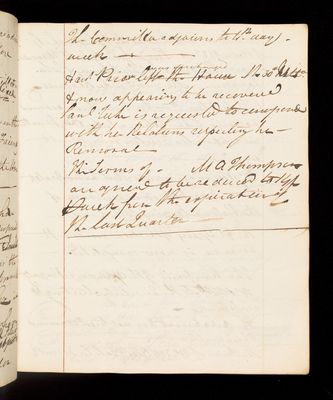 The Committee adjourns to 4th day
week
Han! Prior left the House
& now appearing to be recovered
Saml Tuke is requested to correspond
with her Relations respecting her
Removal
The Terms of M A Thompson
are agreed to be reduced to
week from the expiration of
the last Quarter